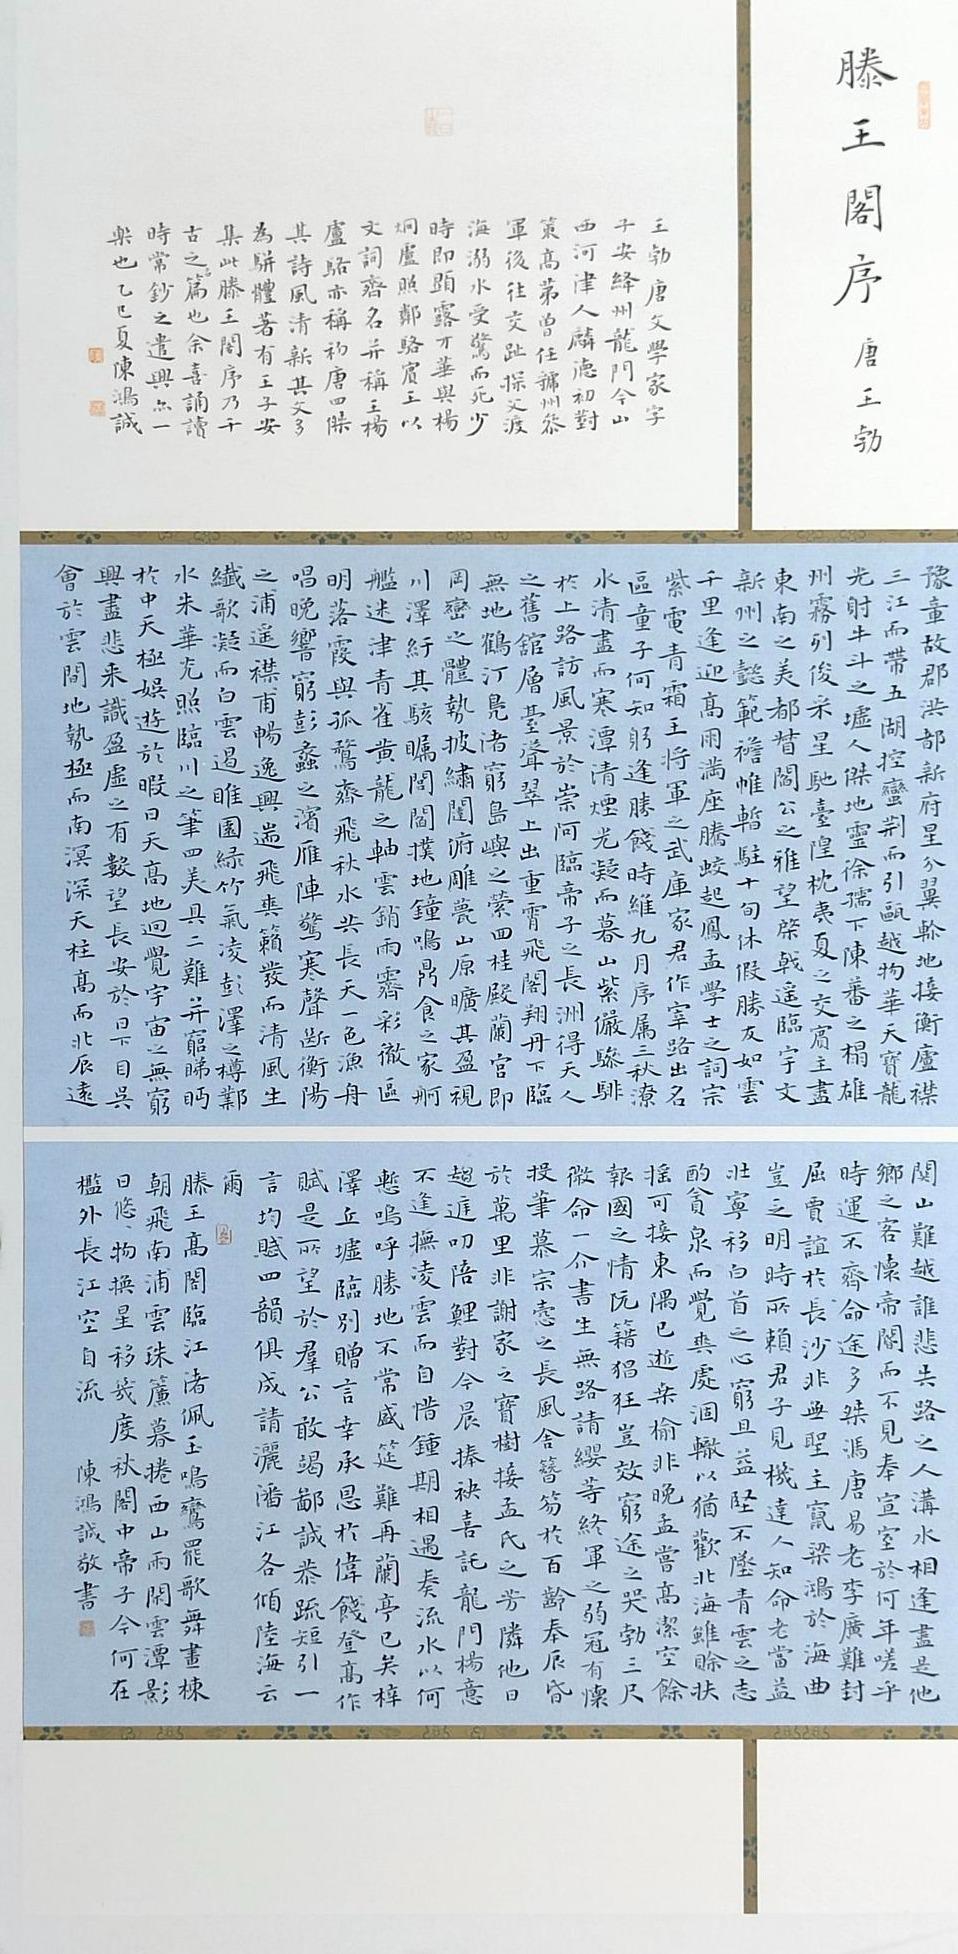 滕王閣序 唐王勃
王勃唐文學家字
子安絳州龍門今山
西河津人麟德初對
策高第曾任虢州叅
軍後往交趾探父渡
海溺水受驚而死少
時即顕露才華與楊
炯盧照鄰駱賓王以
文詞齊名并稱王楊
盧駱亦稱初唐四傑
其詩風清新其文多
為駢體著有王子安
集此滕王閣序乃千
古之名篇也余喜誦讀
時常鈔之遣興亦一
樂也乙巳夏陳鴻誠
豫章故郡洪都新府星分翼軫地接衡廬襟
三江而帶五湖控蠻荆而引甌越物華天寶龍
光射牛斗之墟人傑地靈徐孺下陳蕃之榻雄
州霧列俊采星馳臺隍枕夷夏之交賓主盡
東南之美都督閻公之雅望棨戟遥臨宇文
新州之懿範襜帷暫駐十旬休假勝友如雲
千里逢迎高朋滿座騰蛟起鳳孟學士之詞宗
紫電青霜王將軍之武庫家君作宰路出名
區童子何知躬逢勝餞時維九月序属三秋潦
水清盡而寒潭清煙光凝而暮山紫儼驂騑
於上路訪風景於崇阿臨帝子之長洲得天人
之舊舘層臺聳翠上出重霄飛閣翔丹下臨
無地鶴汀鳧渚窮島嶼之縈回桂殿蘭宫即
岡巒之體勢披繡闥俯雕甍山原曠其盈視
川澤紆其駭矚閭閻撲地鐘鳴鼎食之家舸
艦迷津青雀黄龍之軸雲銷雨霽彩徹區
明落霞與孤鶩齊飛秋水共長天一色漁舟
唱晚響窮彭蠡之濱雁陣驚寒聲斷衡陽
之浦遥襟甫暢逸興遄飛爽籟發而清風生
纖歌凝而白雲遏睢園緑竹氣凌彭澤之樽鄴
水朱華光照臨川之筆四美具二難并窮睇眄
於中天極娱遊於暇日天高地迥覺宇宙之無窮
興盡悲来識盈虚之有數望長安於日下目吴
會於雲間地勢極而南溟深天柱高而北辰遠
関山難越誰悲失路之人溝水相逢盡是他
鄉之客懷帝閽而不見奉宣室於何年嗟乎
時運不齊命途多舛馮唐易老李廣難封
屈賈誼於長沙非無聖主竄梁鴻於海曲
豈乏明時所賴君子見機達人知命老當益
壯寧移白首之心窮且益堅不墜青雲之志
酌貪泉而覺爽處涸轍以猶歡北海雖賒扶
摇可接東隅已逝桑榆非晚孟嘗高潔空餘
報國之情阮籍猖狂豈效窮途之哭勃三尺
微命一介書生無路請纓等終軍之弱冠有懷
投筆慕宗慤之長風舍簪笏於百齡奉晨昏
於萬里非謝家之寶樹接孟氏之芳隣他日
趨庭叨陪鯉對今晨捧袂喜託龍門楊意
不逢撫凌雲而自惜鍾期相遇奏流水以何
慙嗚呼勝地不常盛筵難再蘭亭已矣梓
澤丘墟臨别贈言幸承恩於偉餞登高作
賦是所望於羣公敢竭鄙誠恭疏短引一
言均賦四韻俱成請灑潘江各傾陸海云
爾
滕王高閣臨江渚佩玉鳴鸞罷歌舞畫棟
朝飛南浦雲珠簾暮捲西山雨閑雲潭影
日悠々物換星移幾度秋閣中帝子今何在
檻外長江空自流 陳鴻誠敬書